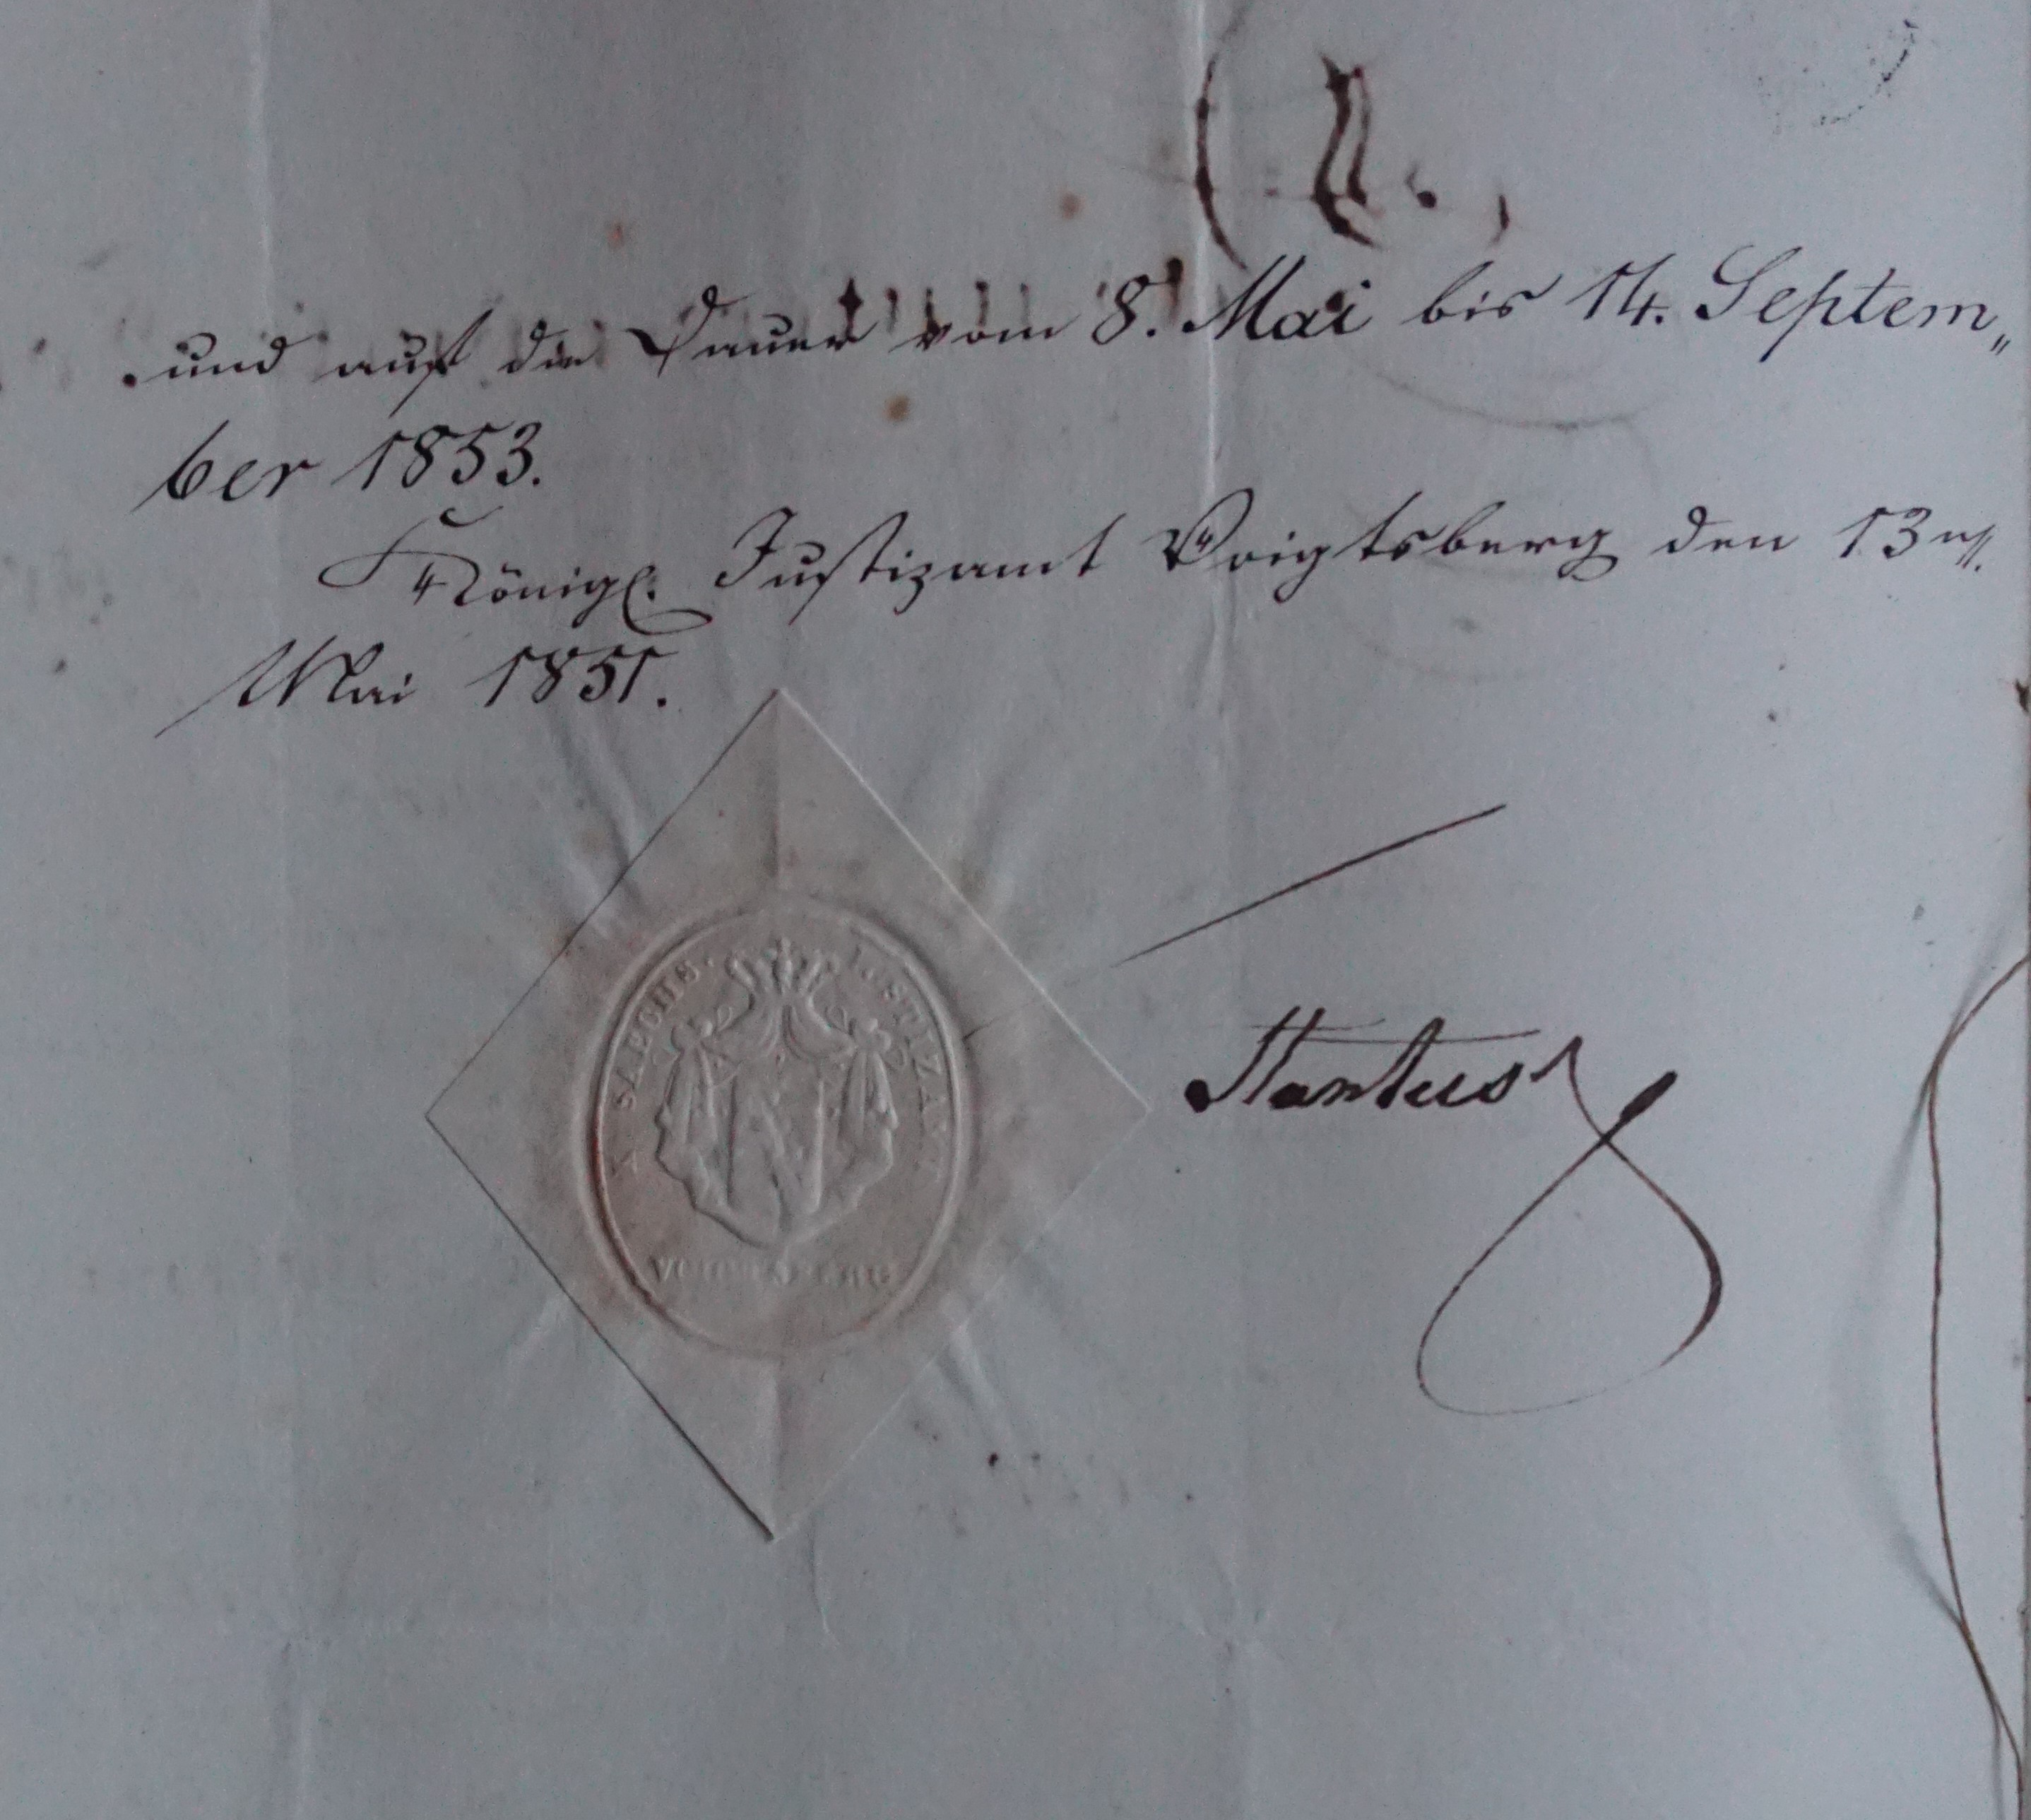 und auf die Dauer vom 8. Mai bis 14. Septem„
ber 1853.
Königl. Justizamt Voigtsberg den 13
Mai 1851.
K. SAECHS. JUSTIZAMT
VOIGTSBERG